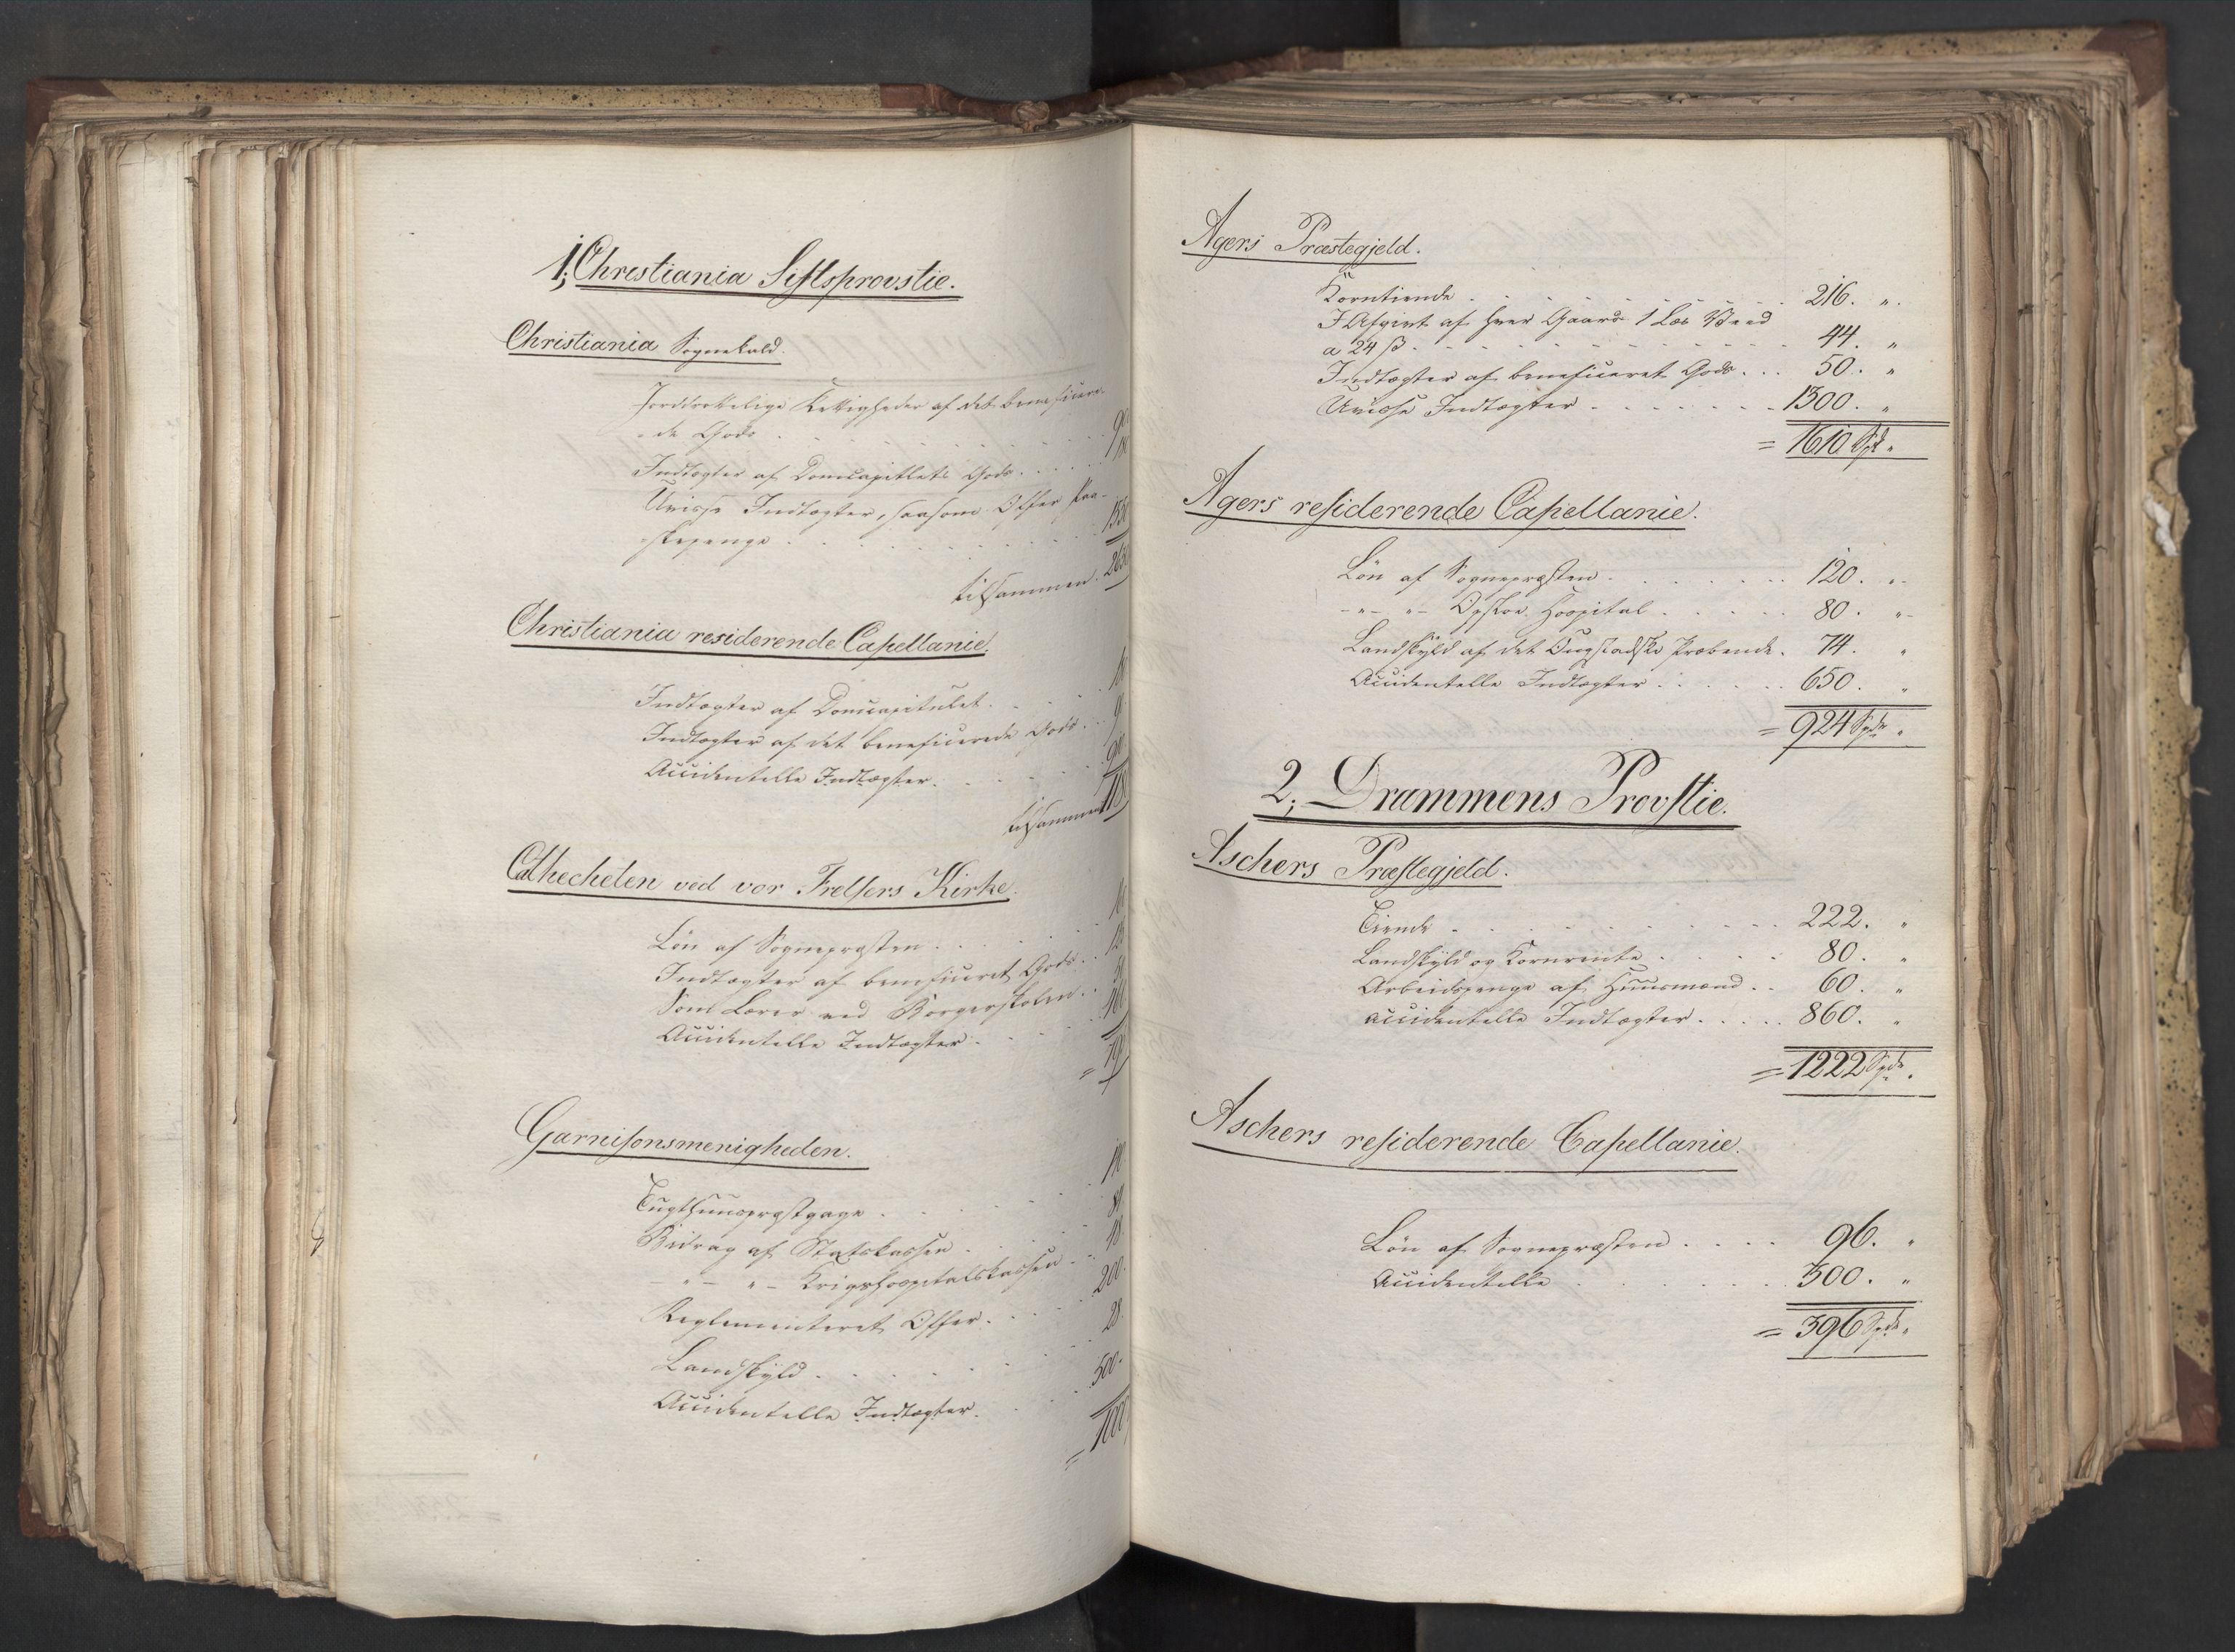 1; Christiania Stiftsprovstie.
Christiania Sognekald.
Jorddrottelige Rettigheder af det beneficere-
-de Gods
Indtægter af Domcapitlets Gods
Uvisse Indtægter, saasom Offer Paa-
-skepenge
tilsammen
Christiania residerende Capellanie.
Indtægter af Domcapitulet
Indtægter af det beneficerede Gods
Accidentelle Indtægter
tilsammen
Cathecheten ved vor Frelsers Kirke.
Løn af Sognepræsten
Indtægter af beneficeret Gods
Som Lærer ved Borgerskolen
Accidentelle Indtægter
Garnisonsmenigheden.
Tugthuuspræstgage
Bidrag af Statskassen
-"- "- Krigshospitalskassen
Reglementeret Offer 200.
Landskyld 28.
Accidentelle Indtægter 500.
Agers Præstegjeld.
Korntiende 216. "
I Afgivt af hver Gaard 1 Læs Veed
a 24 ß 44. "
Indtægter af beneficeret Gods 50. "
Uvisse Indtægter 1300. "
= 1610 Spd "
Agers residerende Capellanie.
Løn af Sognepræsten 120. "
-"- "- Opsloe Hospital 80. "
Landskyld af det Præbende 74. "
Accidentelle Indtægter 650. "
= 924 Spd "
2; Drammens Provstie.
Aschers Præstegjeld.
Tiende 222. "
Landskyld og Kornrente 80. "
Arbeidspenge af Huusmænd 60. "
accidentelle Indtægter 860. "
= 1222 Spd.
Aschers residerende Capellanie.
Løn af Sognepræsten 96. "
Accidentelle 300. "
= 396 Spd "